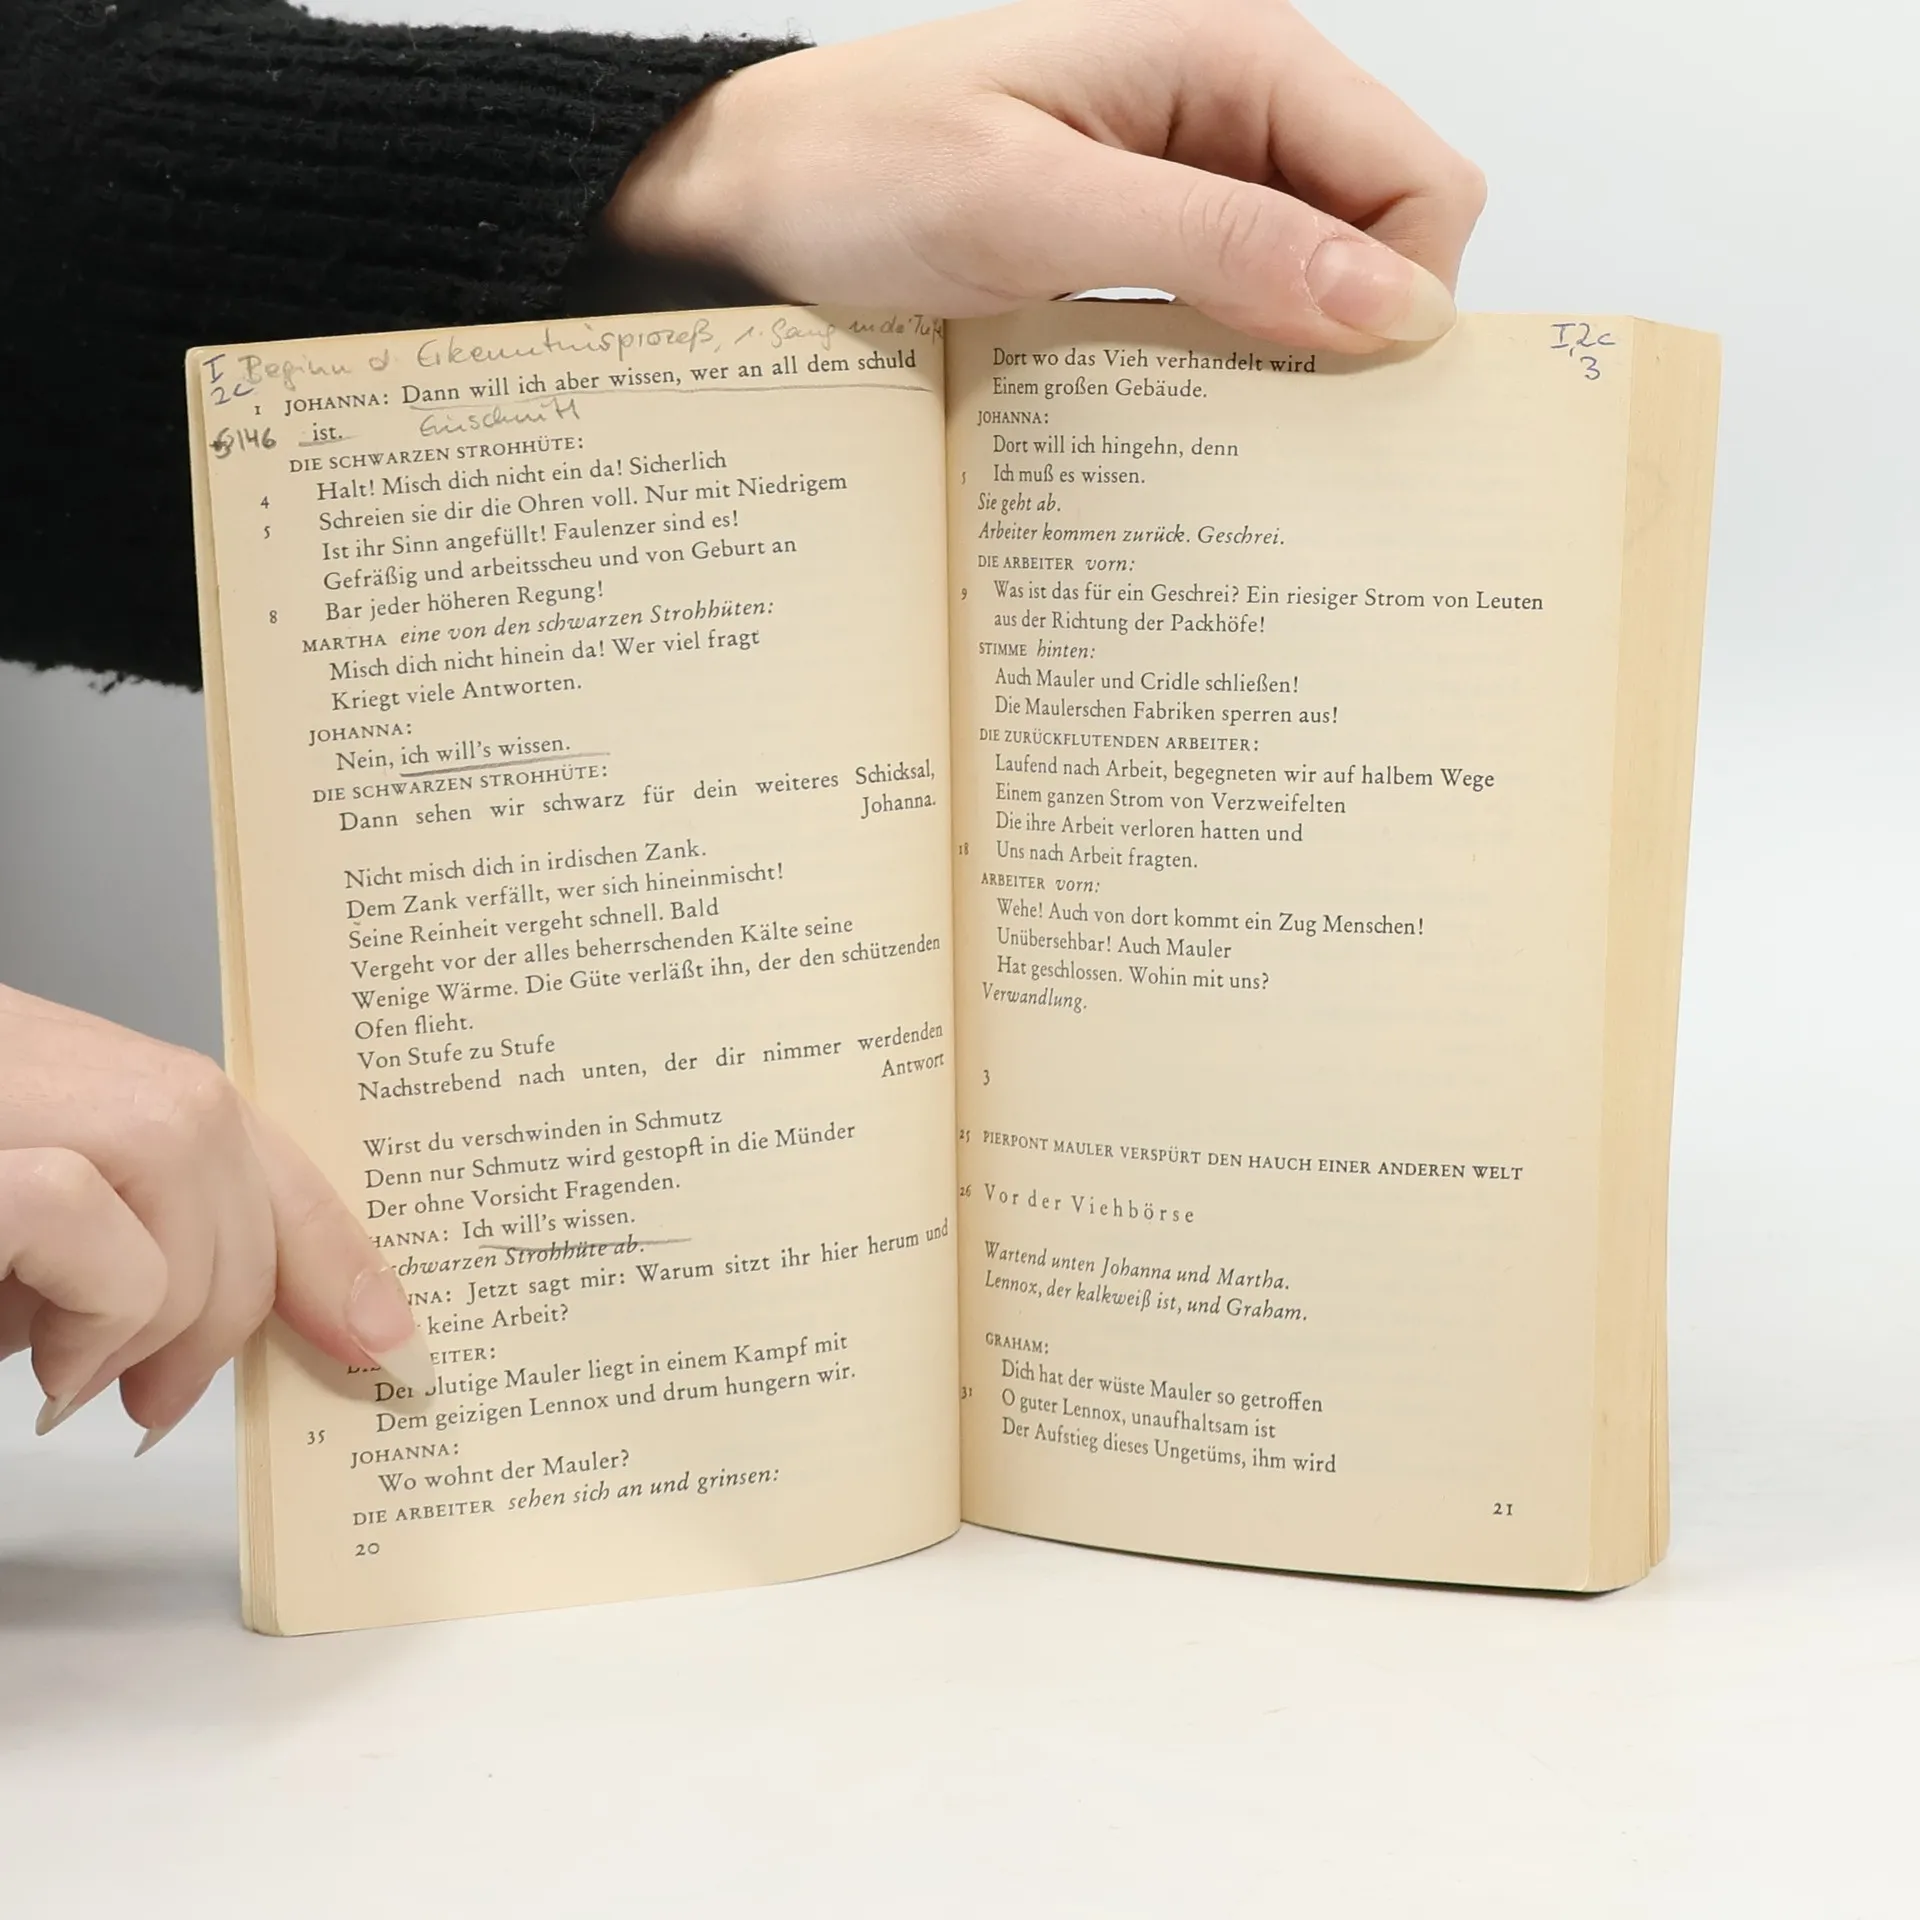 I Beginn d. Erkenntnisprozeß, 1. Gang in die Tiefe
2c
1 JOHANNA: Dann will ich aber wissen, wer an all dem schuld
146 ist. Einschnitt
DIE SCHWARZEN STROHHÜTE:
Halt! Misch dich nicht ein da! Sicherlich
4 Schreien sie dir die Ohren voll. Nur mit Niedrigem
5 Ist ihr Sinn angefüllt! Faulenzer sind es!
Gefräßig und arbeitsscheu und von Geburt an
8 Bar jeder höheren Regung!
MARTHA eine von den schwarzen Strohhüten:
Misch dich nicht hinein da! Wer viel fragt
Kriegt viele Antworten.
JOHANNA:
Nein, ich will's wissen.
DIE SCHWARZEN STROHHÜTE:
Dann sehen wir schwarz für dein weiteres Schicksal,
Johanna.
Nicht misch dich in irdischen Zank.
Dem Zank verfällt, wer sich hineinmischt!
Seine Reinheit vergeht schnell. Bald
Vergeht vor der alles beherrschenden Kälte seine
Wenige Wärme. Die Güte verläßt ihn, der den schützenden
Ofen flieht.
Von Stufe zu Stufe
Nachstrebend nach unten, der dir nimmer werdenden
Antwort
Wirst du verschwinden in Schmutz
Denn nur Schmutz wird gestopft in die Münder
Der ohne Vorsicht Fragenden.
HANNA: Ich will's wissen.
schwarzen Strohhüte ab.
NNA: Jetzt sagt mir: Warum sitzt ihr hier herum und
keine Arbeit?
EITER:
Der blutige Mauler liegt in einem Kampf mit
35 Dem geizigen Lennox und drum hungern wir.
JOHANNA:
Wo wohnt der Mauler?
DIE ARBEITER sehen sich an und grinsen:
20
I,2c
3
Dort wo das Vieh verhandelt wird
Einem großen Gebäude.
JOHANNA:
Dort will ich hingehn, denn
5 Ich muß es wissen.
Sie geht ab.
Arbeiter kommen zurück. Geschrei.
DIE ARBEITER vorn:
9 Was ist das für ein Geschrei? Ein riesiger Strom von Leuten
aus der Richtung der Packhöfe!
STIMME hinten:
Auch Mauler und Cridle schließen!
Die Maulerschen Fabriken sperren aus!
DIE ZURÜCKFLUTENDEN ARBEITER:
Laufend nach Arbeit, begegneten wir auf halbem Wege
Einem ganzen Strom von Verzweifelten
Die ihre Arbeit verloren hatten und
18 Uns nach Arbeit fragten.
ARBEITER vorn:
Wehe! Auch von dort kommt ein Zug Menschen!
Unübersehbar! Auch Mauler
Hat geschlossen. Wohin mit uns?
Verwandlung.
3
25 PIERPONT MAULER VERSPÜRT DEN HAUCH EINER ANDEREN WELT
26 Vor der Viehbörse
Wartend unten Johanna und Martha.
Lennox, der kalkweiß ist, und Graham.
GRAHAM:
Dich hat der wüste Mauler so getroffen
31 O guter Lennox, unaufhaltsam ist
Der Aufstieg dieses Ungetüms, ihm wird
21